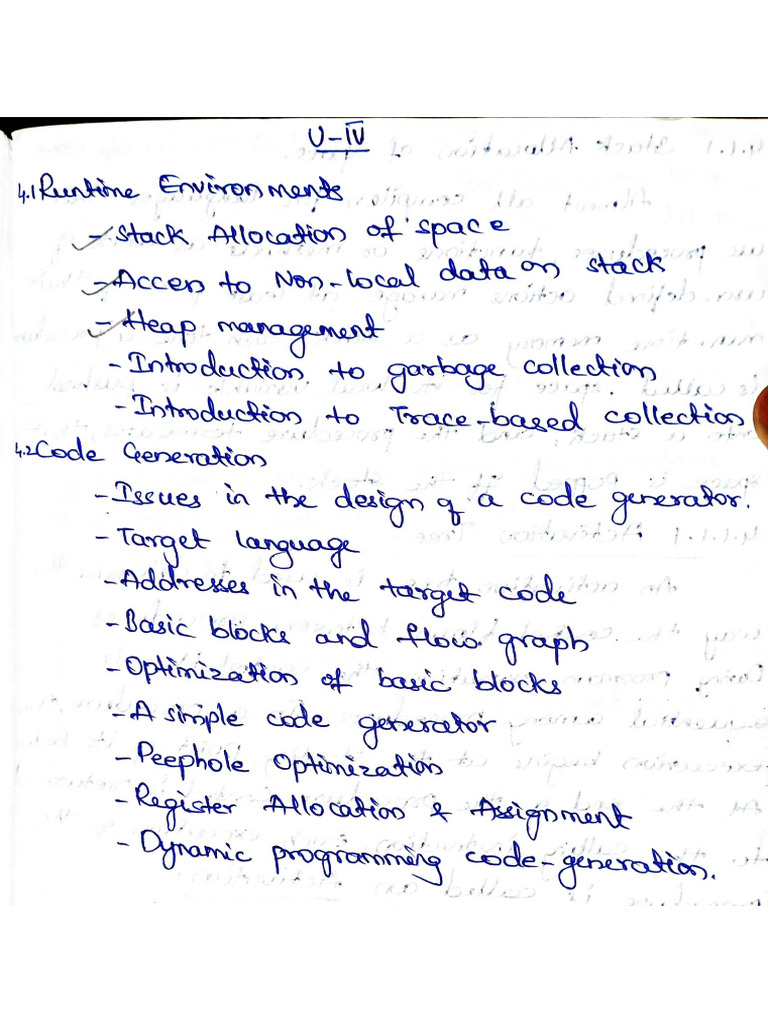 U-IV
4.1 Runtime Environments
- Stack Allocation of space
- Access to Non-local data on stack
- Heap management
- Introduction to garbage collection
- Introduction to Trace-based collection
4.2 Code Generation
- Issues in the design of a code generator.
- Target language
- Addresses in the target code
- Basic blocks and flow graph
- Optimization of basic blocks
- A simple code generator
- Peephole Optimization
- Register Allocation & Assignment
- Dynamic programming code-generation.